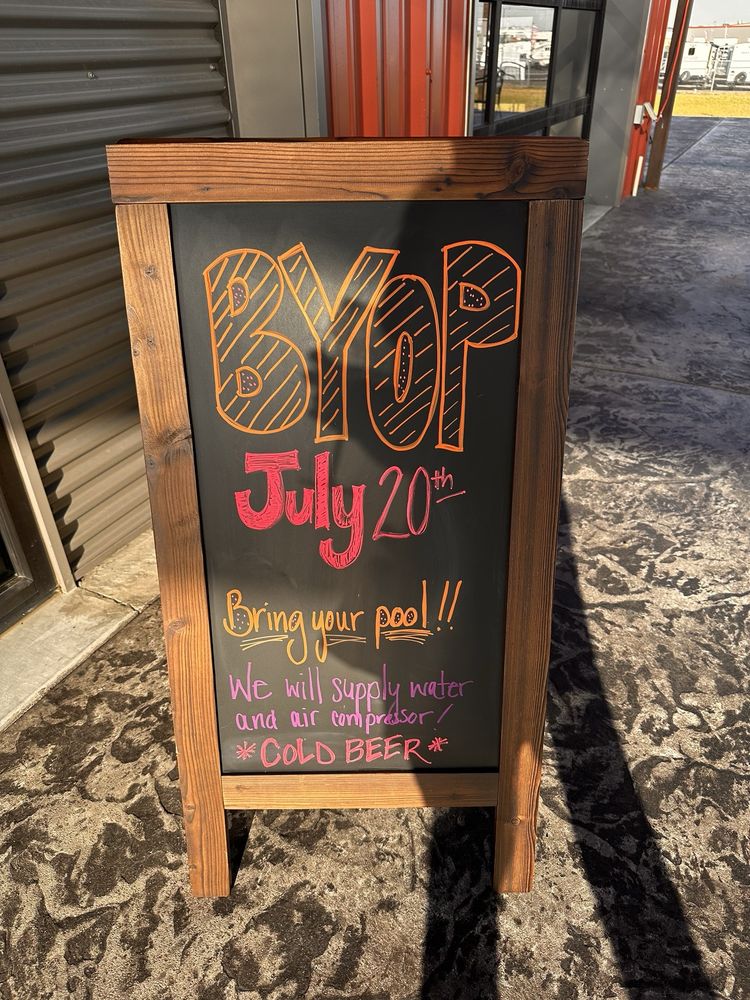 BYOP
July 20th
Bring your pool!!
We will supply water
and air compressor!
*COLD BEER*